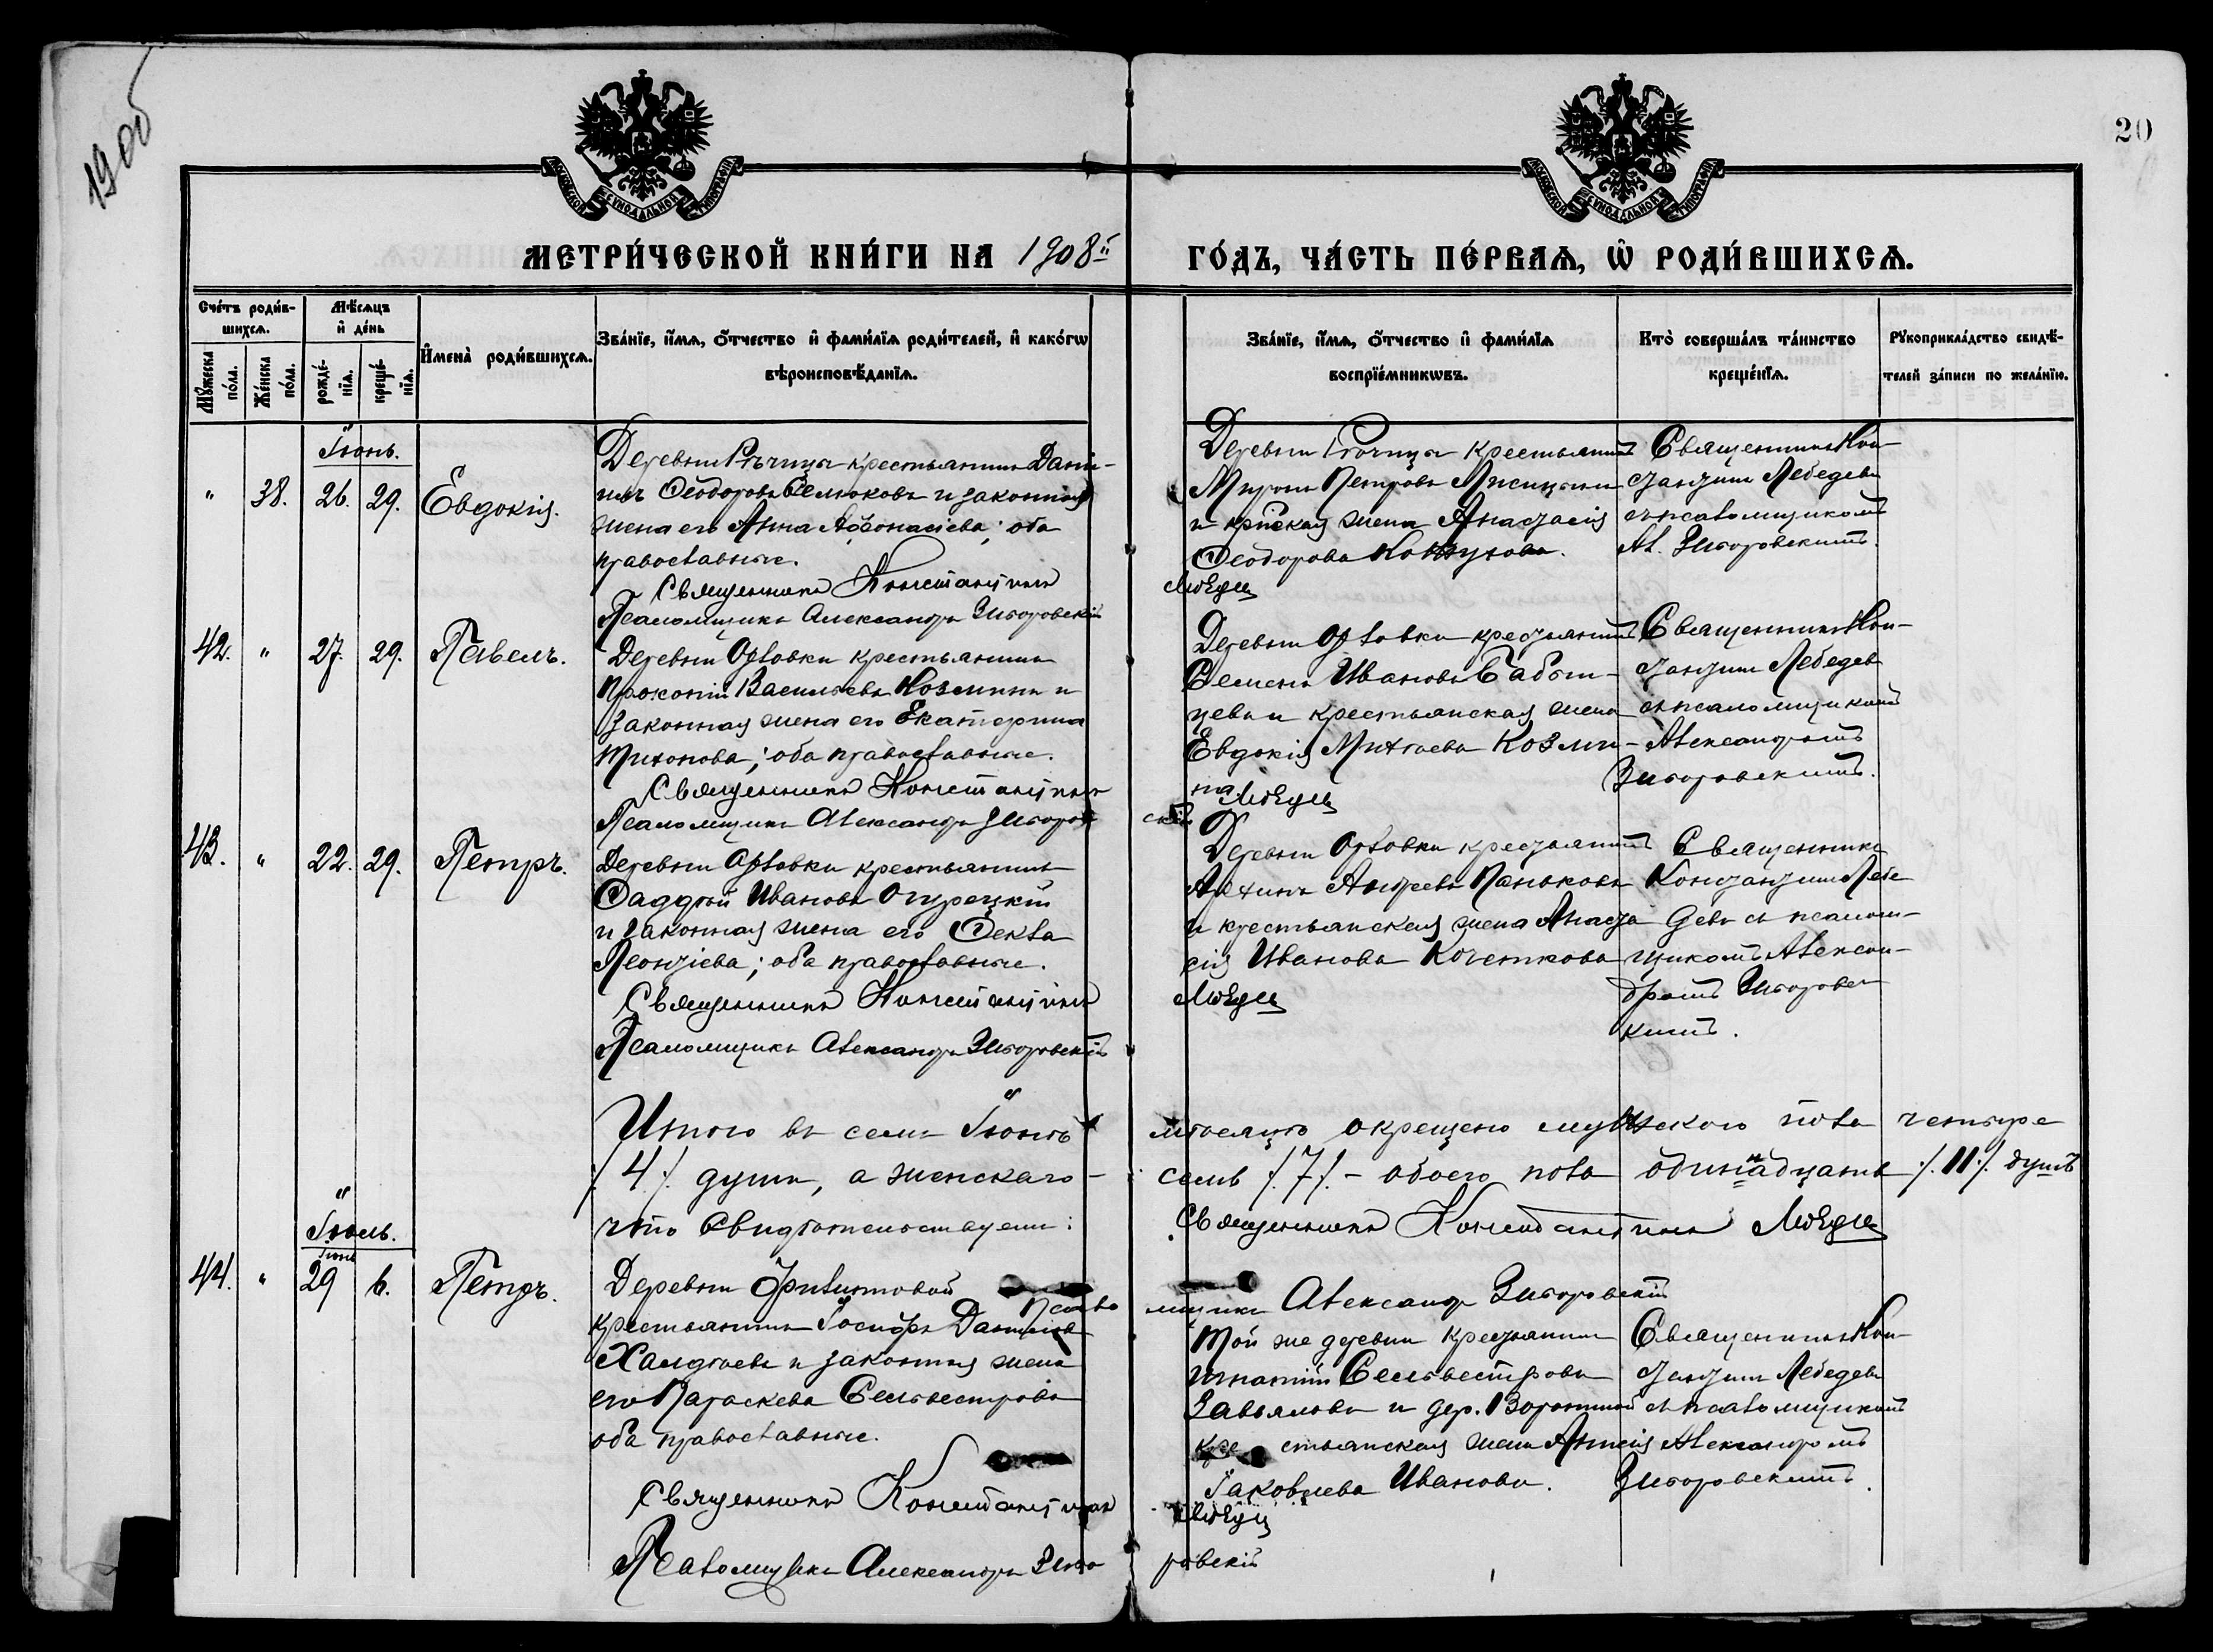 1908
20
МЕТРИ́ЧЕСКОЙ КНИ́ГИ НА 1908й
ГО́ДЪ, ЧА́СТЬ ПЕ́РВАѦ, Ѡ҆ РОДИ́ВШИХСѦ.
Сче́тъ роди́в-
шихсѧ.
Мꙋ́жеска
по́ла.
Же́нска
по́ла.
Мѣ́сѧцъ
и҆ де́нь
рожде́-
нїѧ.
креще́-
нїѧ.
И҆мена̀ роди́вшихсѧ.
Зва́нїе, и҆́мѧ, ѻ҆́тчество и҆ фами́лїѧ роди́телей, и҆ како́гѡ
вѣроисповѣ́данїѧ.
Зва́нїе, и҆́мѧ, ѻ҆́тчество и҆ фами́лїѧ
воспрїе́мникѡвъ.
Кто̀ соверша́лъ та́инство
креще́нїѧ.
Рꙋкоприкла́дство свидѣ́-
телей за́писи по жела́нїю.
Іюнь.
" 38. 26. 29. Евдокія.
Деревни крестьянинъ Дані-
илъ Ѳеодоровъ Селюковъ и законная
жена его Анна Аѳонасіева; оба
православные.
Священникъ Константинъ
Псаломщикъ Александръ
Деревни крестьянинъ
Миронъ Петровъ Лисицынъ
и кр̃нская жена Анастасія
Ѳеодорова
Священникъ Кон-
стантинъ Лебедевъ
съ псаломщикомъ
Ал.
42. " 27. 29. Павелъ.
Деревни Орловки крестьянинъ
Прокопій Васильевъ Козминъ и
законная жена его Екатерина
Тихонова; оба православные.
Священникъ Константинъ
Псаломщикъ Александръ
Деревни Орловки крестьянинъ
Семенъ Ивановъ Бабын-
цевъ и крестьянская жена
Евдокія Михѣева Козми-
на
Священникъ Кон-
стантинъ Лебедевъ
съ псаломщикомъ
Александромъ
43. " 22. 29. Петръ.
Деревни Орловки крестьянинъ
Ѳаддей Ивановъ Огурецкій
и законная жена его Ѳекла
Леонтіева; оба православные.
Священникъ Константинъ
Псаломщикъ Александръ
Деревни Орловки крестьянинъ
Андреевъ Паньковъ
и крестьянская жена Анаста
сія Иванова Кочеткова
Священникъ
Константинъ Лебе
девъ съ псалом-
щикомъ Алексан-
дромъ
Итого въ семъ Іюнѣ мѣсяцѣ окрещено мужскаго пола четыре
/.4./. души, а женскаго - семь /.7/. - обоего пола одиннадцать /.11./. душъ
что свидѣтельствуемъ: Священникъ Константинъ
Псаломщикъ Александръ
Іюль.
Іюнь
44. " 29 6. Петръ.
Деревни
крестьянинъ Іосифъ Даніиловъ
Халдѣевъ и законная жена
его Параскева Сельвестрова
оба православные.
Священникъ Константинъ
Псаломщикъ Александръ
Той же деревни крестьянинъ
Игнатій Сельвестровъ
Завьяловъ и дер.
крестьянская жена
Іаковлева Иванова.
Священникъ Кон-
стантинъ Лебедевъ
съ псаломщикомъ
Александромъ